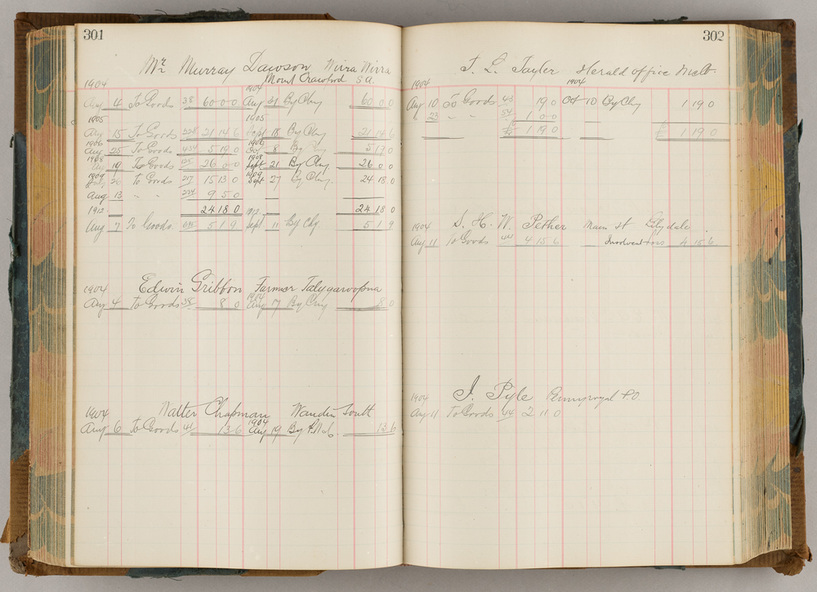 301
Mr Murray Dawson Wirra Wirra
Mount Crawford S.A.
1904 1904
Aug 4 To Goods 38 60 0 0 Aug 31 By Chq 60 0 0
1905 1905
Aug 15 To Goods 21 14 6 Sept 18 By Chq 21 14 6
1906 1906
Aug 25 To Goods 5 19 0 8 By Chq 5 19 0
1908 1908
19 To Goods 26 0 0 Sept 21 By Chq 26 0 0
1909 1909
20 To Goods 27 15 13 0 Sept 27 By Chq 24 18 0
Aug 13 " " 9 5 0
24 18 0 24 18 0
1912
Aug 7 To Goods 5 1 9 Sept 11 By Chq 5 1 9
1904 Edwin Gribbon Farmer Talygaroopna
1904
Aug 4 To Goods 38 8 0 Aug 17 By Chq 8 0
1904 Walter Chapman Wandin South
1904
Aug 6 To Goods 41 13 6 Aug 19 By P.N. 13 6
302
T. E. Tayler Herald office Melb.
1904 1904
Aug 10 To Goods 43 19 0 Oct 10 By Chq 1 19 0
23 " " 1 0 0
£ 1 19 0 £ 1 19 0
1904 S. H. W. Pether Main St Lilydale
Aug 11 To Goods 4 15 6 Insolvent Loss 4 15 6
1904 J. Pyle Kennivragal P.O.
Aug 11 To Goods 44 2 11 0